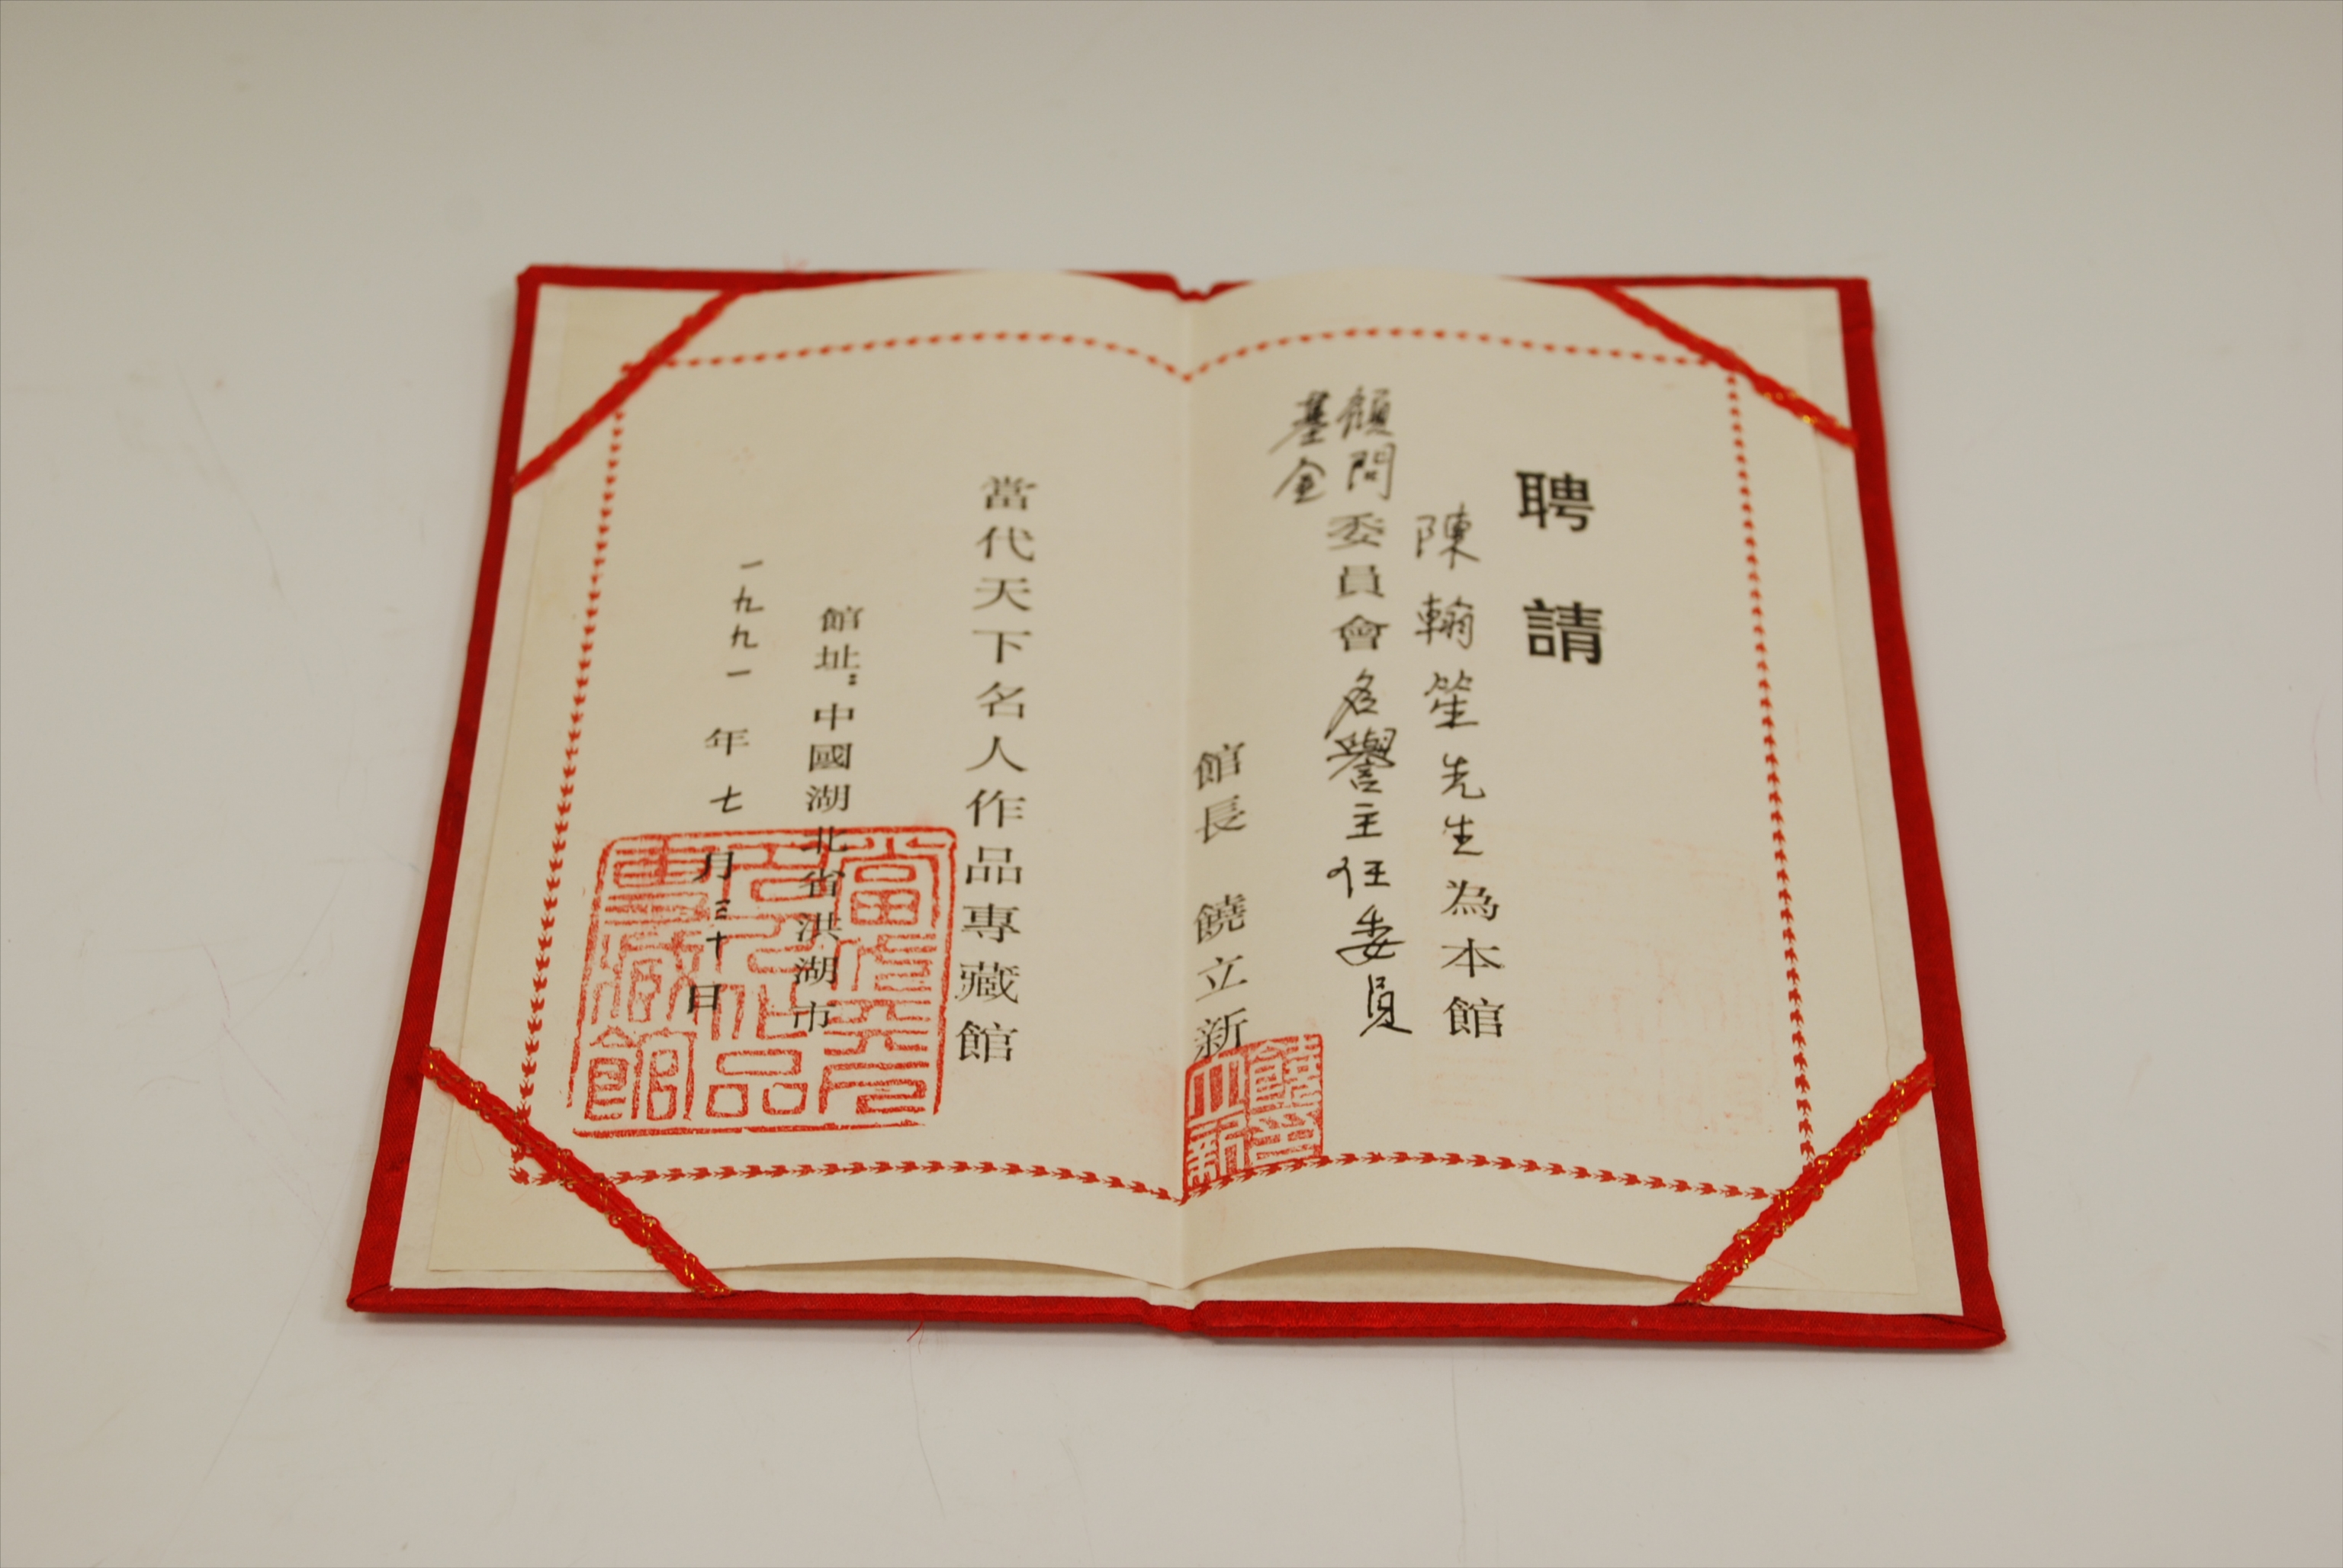 聘請
陳翰笙先生為本館
顧問
基金
委員會名譽主任委員
館長 饒立新
當代天下名人作品專藏館
館址:中國湖北省洪湖市
一九九一年七月三十日
當代天下名人作品專藏館
饒立新